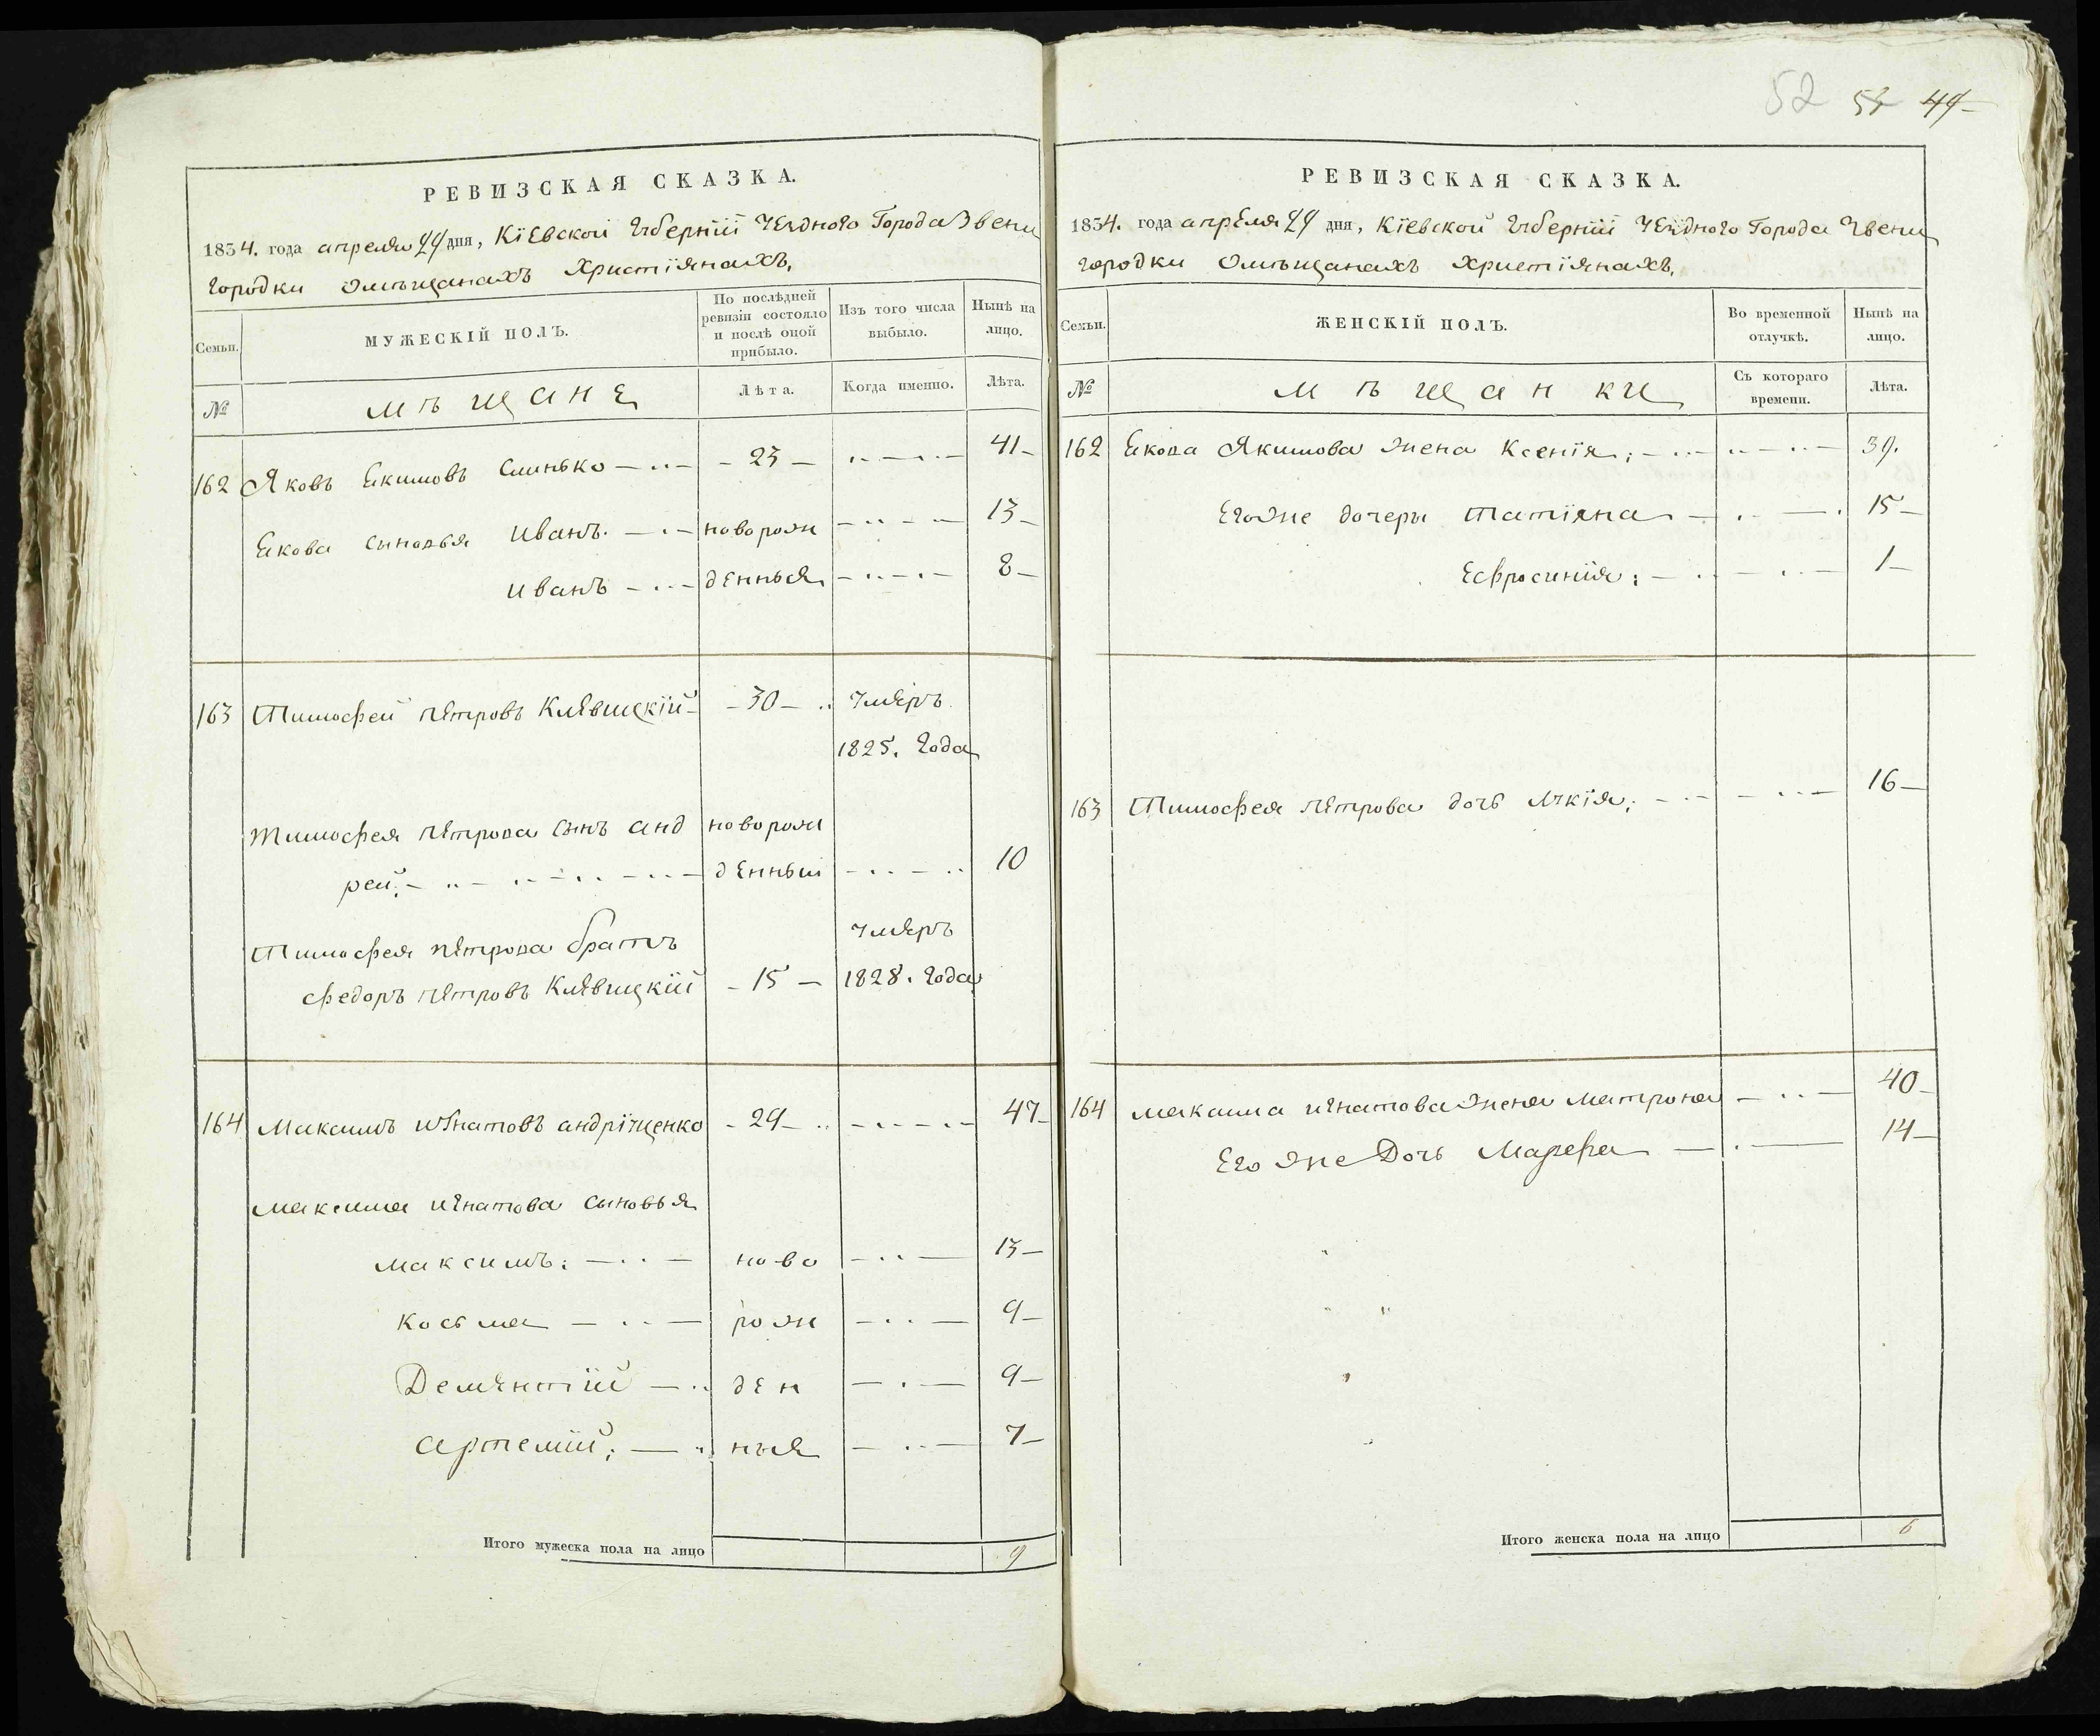 52 53 49
РЕВИЗСКАЯ СКАЗКА.
1834. года апреля 29 дня, Кіевской Губерніи Уезднаго Города Звени
городки Омѣщанахъ Христіянахъ,
Семьи.
МУЖЕСКІЙ ПОЛЪ.
По послѣдней ревизіи состояло и послѣ оной прибыло.
Изъ того числа выбыло.
Нынѣ на лицо.
№
Мѣщане
Лѣта.
Когда именно.
Лѣта.
162 Яковъ Екимовъ Слинько - 23 - 41
Екова сыновья Иванъ. новорож 13
Иванъ денныя 8
163 Тимофей Петровъ Клевицкій - 30 - умеръ
1825. года
Тимофея Петрова сынъ Анд новорож
рей; денный 10
Тимофея Петрова братъ умеръ
Федоръ Петровъ Клевицкій - 15 - 1828. года
164 Максимъ Игнатовъ Андріущенко - 29 - 47
Максима Игнатова сыновья
Максимъ: ново 13
Косьма рож 9
Дементій ден 9
Артемій; ныя 7
Итого мужеска пола на лицо 9
РЕВИЗСКАЯ СКАЗКА.
1834. года апреля 29 дня, Кіевской Губерніи Уезднаго Города Звени
городки Омѣщанахъ Христіянахъ,
Семьи.
ЖЕНСКІЙ ПОЛЪ.
Во временной отлучкѣ.
Нынѣ на лицо.
№
Мѣщанки
Съ котораго времени.
Лѣта.
162 Екова Якимова жена Ксенія; 39.
Егоже дочеры Татіяна 15
Есфросинія; 1
163 Тимофея Петрова дочь Лукія; 16
164 Максима Игнатова жена Матрона 40
Его же Дочь Марфа 14
Итого женска пола на лицо 6